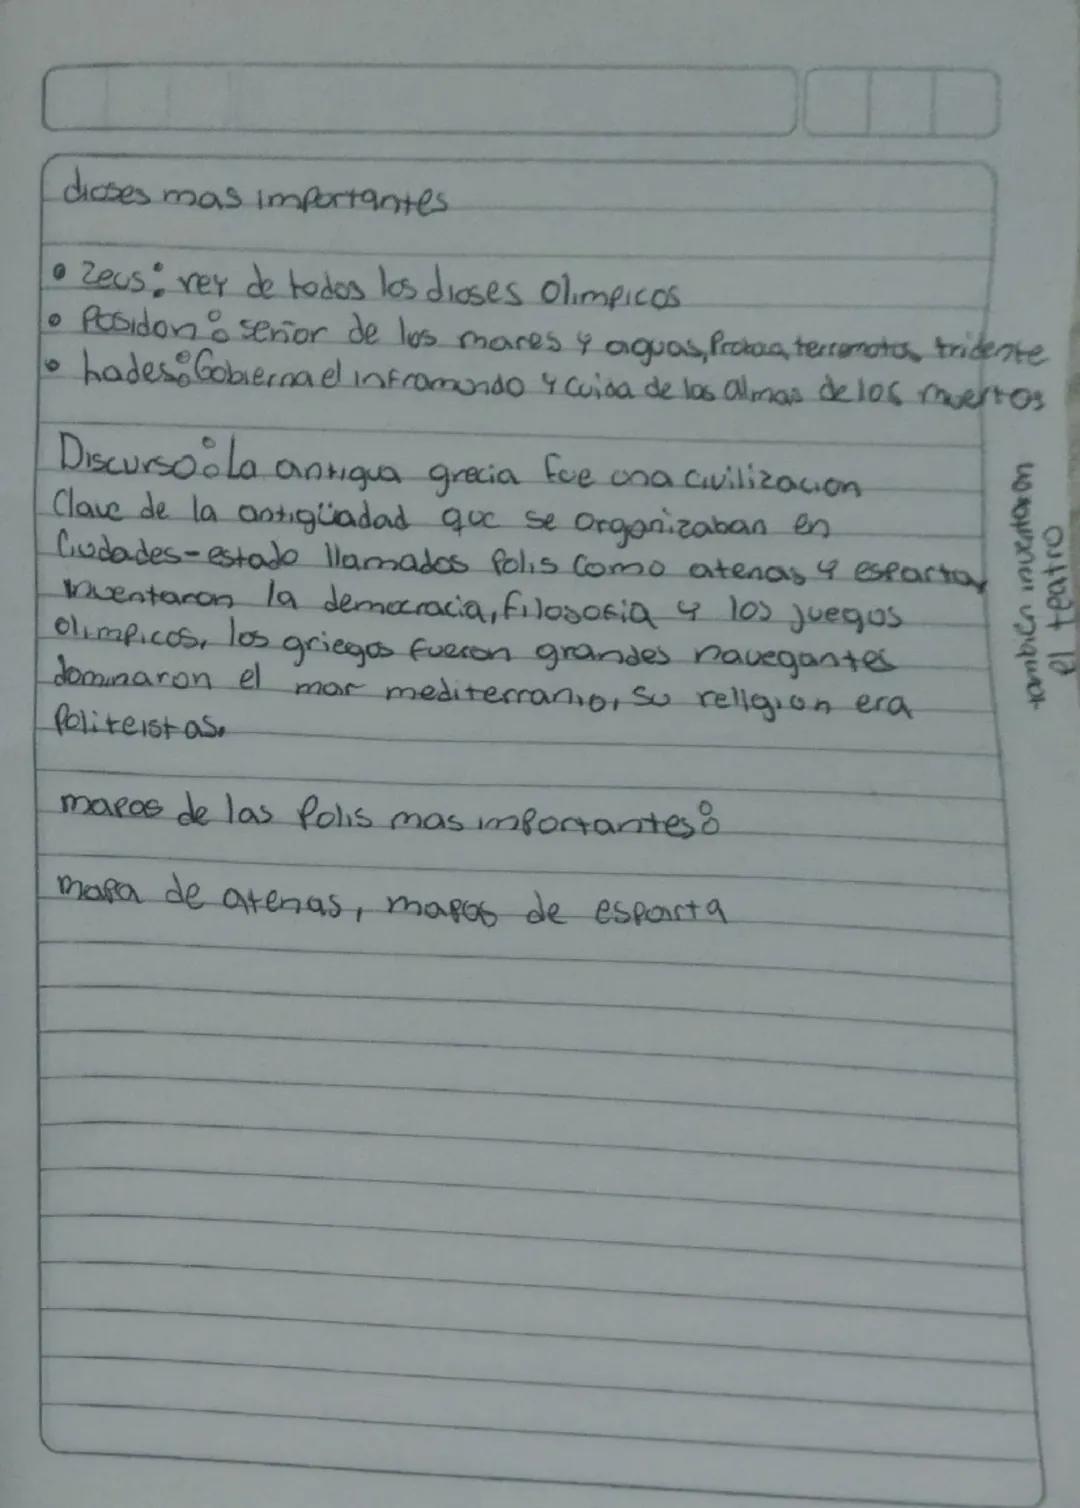 dioses mas importantes
• Zeus: rey de todos los dioses Olimpicos
• Posidon: señor de los mares y aguas, terremotos, tridente
• hades: Gobierna el inframundo y cuida de las almas de los muertos
Discurso: La antigua grecia fue una civilizacion
Clave de la antigüadad que se organizaban en
Ciudades-estado llamados Polis como atenas y esparta,
inventaron la democracia, filosofia y los juegos
olimpicos, los griegos fueron grandes navegantes
dominaron el mar mediterranio, su religion era
Politeistas.
mapas de las Polis mas importantes:
mapa de atenas, mapas de esparta
tambien inventaron
el teatro